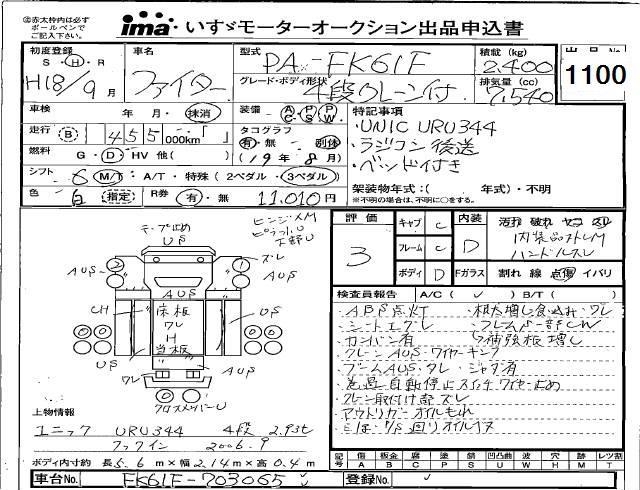 ㊟赤太枠内は必ず
ボールペンで
ご記入下さい。
ima いすゞモーターオークション出品申込書
初度登録 S・H・R
H18/9月
車名
ファイター
型式 PA-FK61F
グレード・ボディ形状
4段クレーン付
積載(kg)
2,400
排気量(cc)
7,540
出品No
1100
車検 年・月・抹消
装備 AC PS PW
特記事項
・UNIC URU344
・ラジコン 後送
・ベッド付き
走行 B 455 000km
タコグラフ
有・無 別体
(19年8月)
燃料 G・D・HV 他( )
シフト 6 M/T・A/T・特殊(2ペダル・3ペダル)
架装物年式:( 年式)・不明
※不明の場合は、不明に○をする。
色 白 指定 R券 有・無 11,010円
評価
3
キャブ C
フレーム C
ボディ D
内装 D
Fガラス
汚れ 破れ ヤコ スレ
内装品 外しM
ハンドルスレ
割れ 線 点傷 イバリ
テープ止め
US
ヒンジ×M
ピラーU
下部U
AUS
ズレ
AUS
AUS
CH
床板
ワレ
H
当板
US
US
ワレ
AUS
クロスメンバーU
検査員報告 A/C( ✓ ) B/T( )
・ABS点灯
・シートエグレ
・カーバン有
・クレーンAUS・ワイヤーキンク
・ブームAUS・タレ・ジャダ有
・巻過自動停止スイッチワイヤー止め
・クレーン取付け部ズレ
・アウトリガーオイルもれ
・ミッション P/S廻りオイルリヌ
・根太増し食込み・ワレ
・フレームバー部CW
補強板増し
上物情報
ユニック URU344 4段 2.93t
フックイン 2006.9
ボディ内寸約 長5.6m×幅2.14m×高0.4m
記号 傷 A 板金 B 腐 C 塗 P 錆 S 凹凸曲 U 波 W 穴 H 外 M レツ割 T
車台No. FK61F-703065 ✓
登録No.